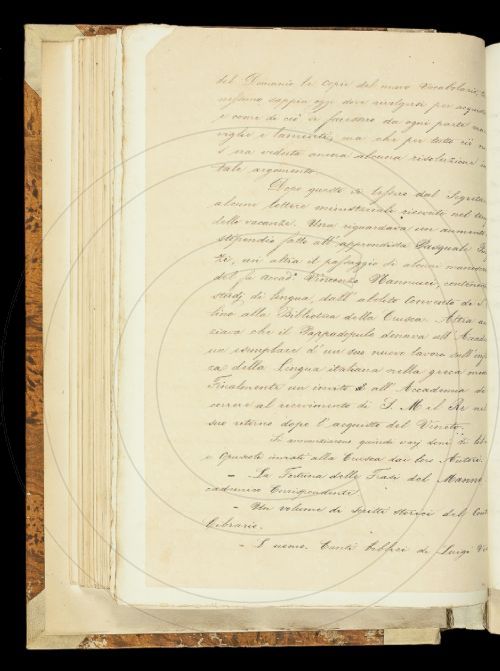 del Demanio le copie del nuovo Vocabolario,
nessuno sappia oggi dove rivolgersi per acquist
e come di ciò si facessero da ogni parte mera
viglie e lamenti, ma che per tutto ciò
s'era veduta ancora alcuna risoluzione in
tale argomento.
Dopo questo si lessero dal Segretar
alcune lettere ministeriali ricevute nel tem
delle vacanze. Una riguardava un aumento
stipendio fatto all'apprendista Pasquale
un'altra il passaggio di alcuni manoscr
del fu Accad.º Vincenzo Nannucci, contenen
studj di lingua, dall'abolito Convento de'
alla Biblioteca della Crusca. Altra
ziava che il Pappadopulo donava all'Accad
un esemplare d'un suo nuovo lavoro sull'in
za della Lingua italiana nella greca mod
Finalmente un invito all'Accademia
correre al ricevimento di S. M. il Re
suo ritorno dopo l'acquisto del Vineto.
Si annunziarono quindi varj doni di lib
e opuscoli inviati alla Crusca dai loro Autori.
– La Fortuna delle Frasi del Mannu
cademico Corrispondente
– Un volume di Scritti storici del Cont
Cibrario.
– L'uomo. Canti biblici di Luigi